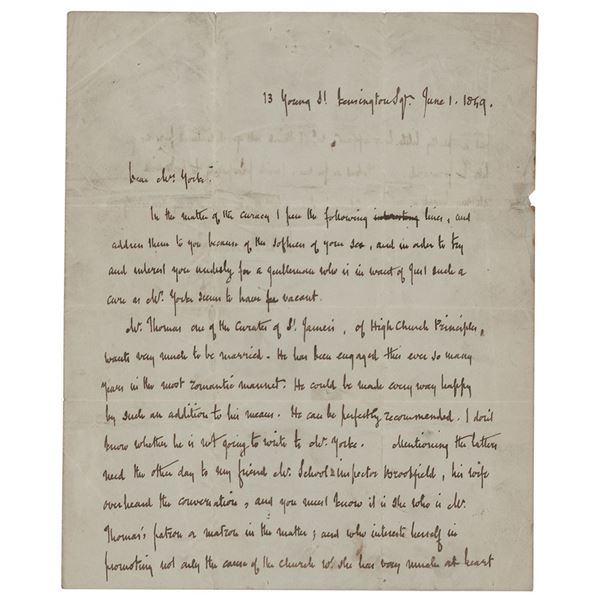 13 Young St. Kensington Sqr. June 1. 1849.
Dear Mrs. Yorke.
In the matter of the curacy I pen the following interesting lines, and
address them to you because of the softness of your sex, and in order to try
and interest you unduly for a gentleman who is in want of just such a
cure as Mr. Yorke seems to have vacant.
Mr. Thomas one of the Curates of St. James's, of High Church Principles,
wants very much to be married. He has been engaged this ever so many
years in the most romantic manner. He could be made every way happy
by such an addition to his means. He can be perfectly recommended. I don't
know whether he is not going to write to Mr. Yorke. Mentioning the latters
need the other day to my friend Mr. School-Inspector Brookfield, his wife
overheard the conversation, and you must know it is she who is Mr.
Thomas's patron or matron in the matter; and who interests herself in
promoting not only the cause of the church wh. she has very much at heart